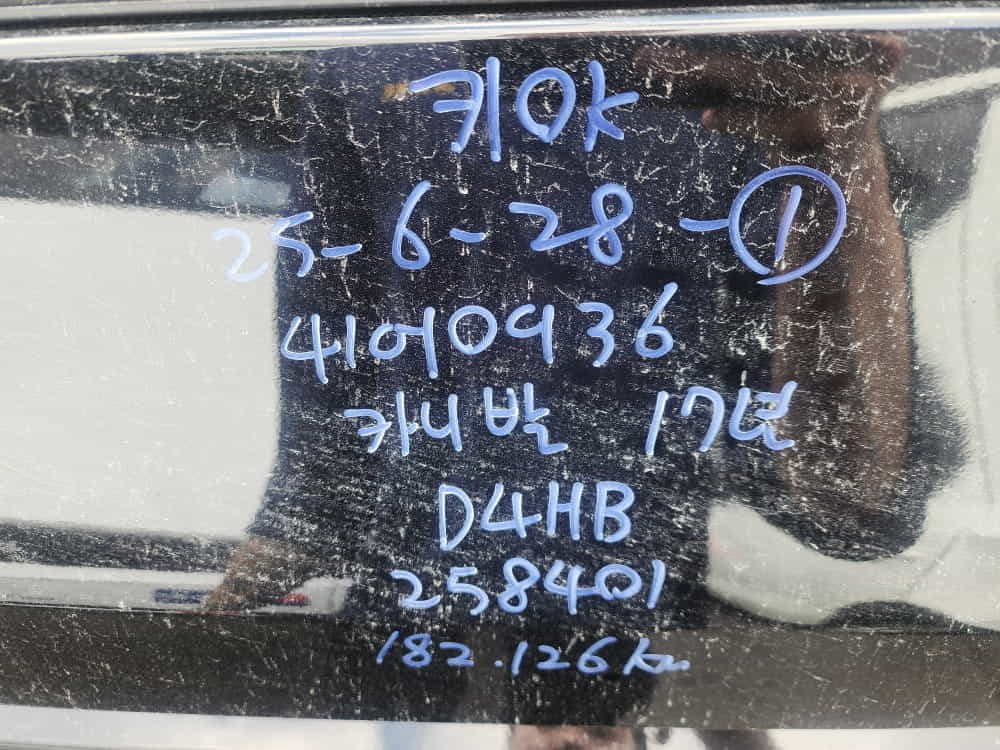 키OK
25-6-28-①
41어0936
카니발 17년
D4HB
258401
182.126Km